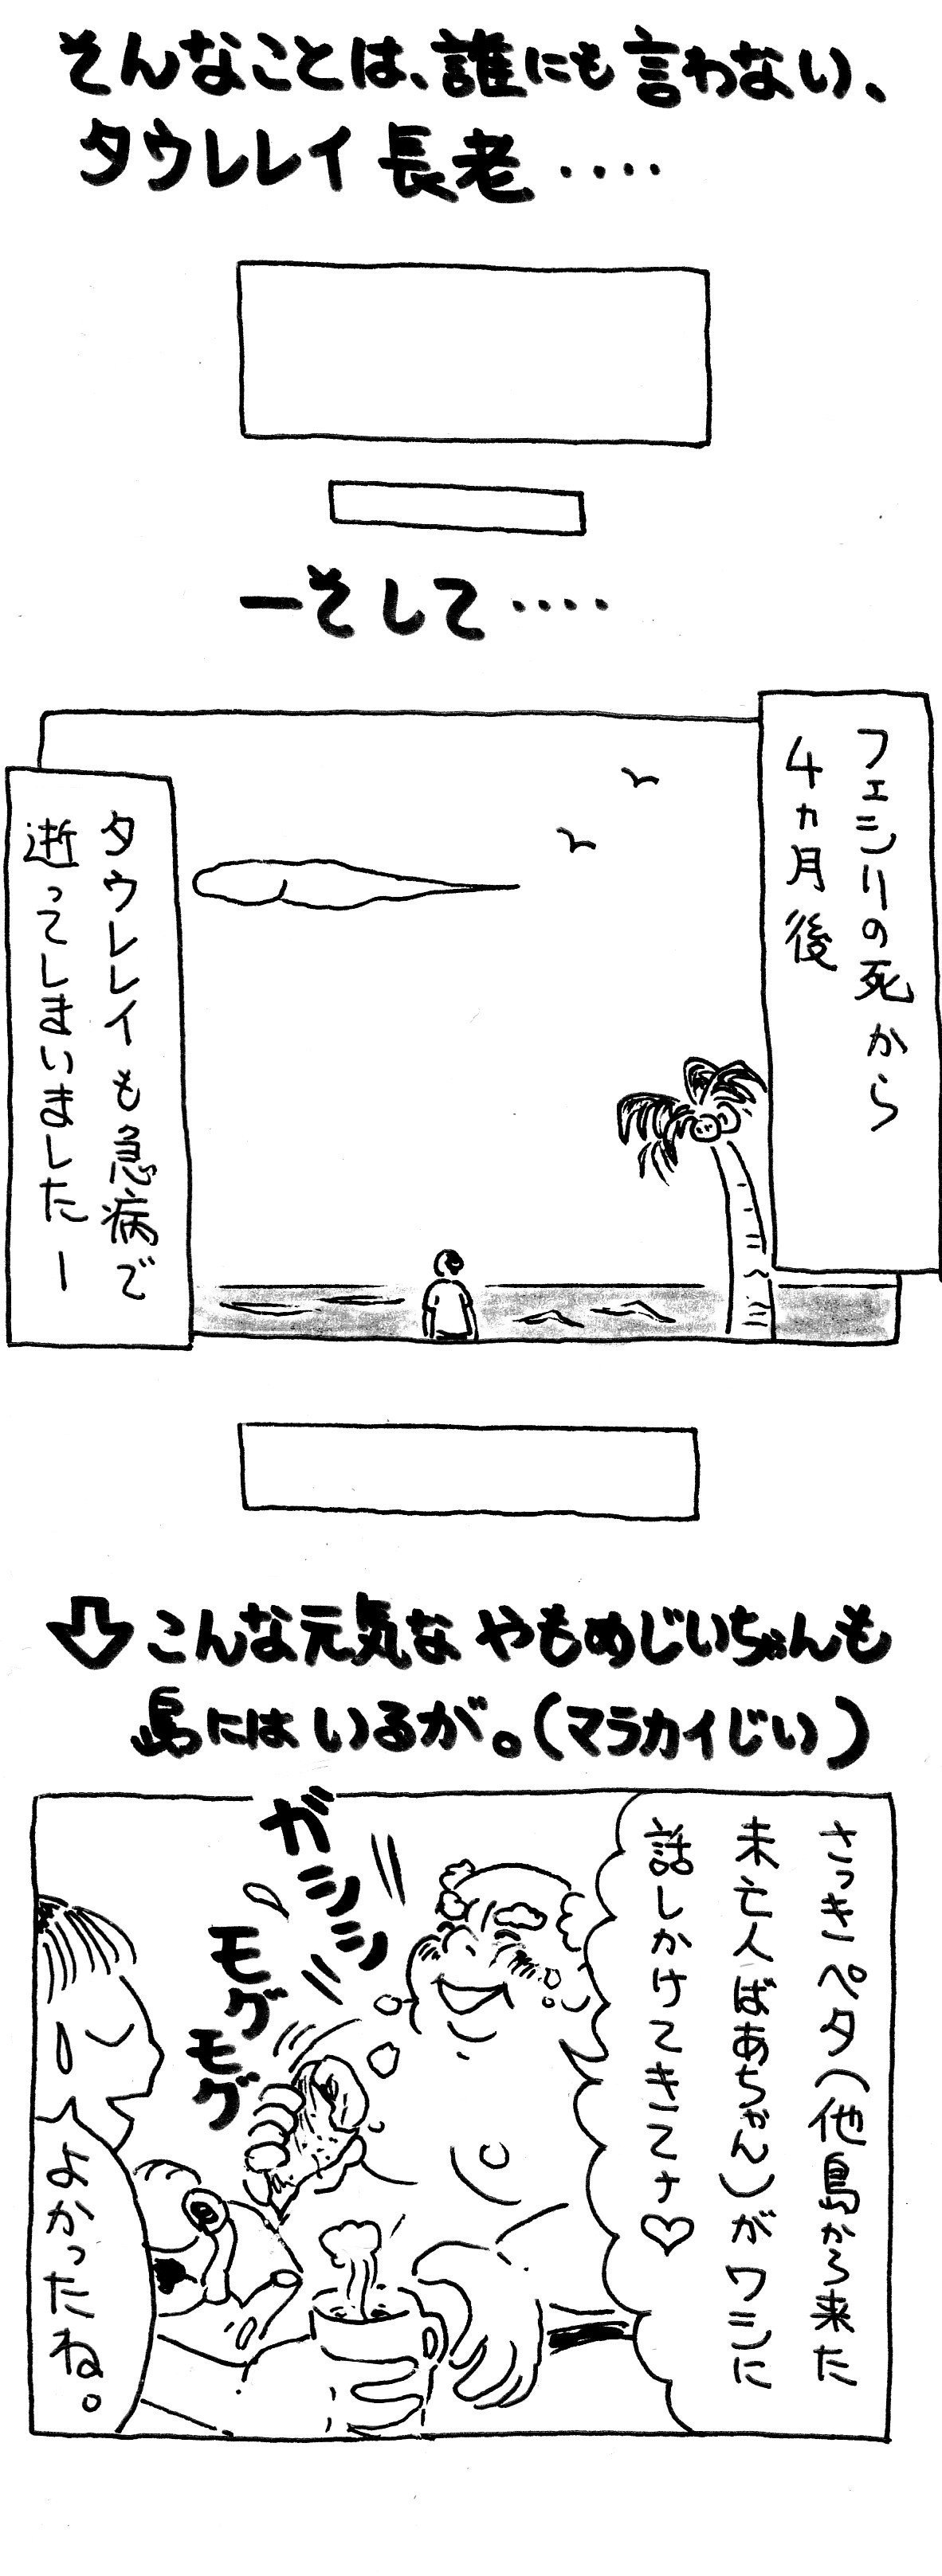 そんなことは、誰にも言わない、
タウレレイ長老‥‥
ーそして‥‥
フェシリの死から
4ヵ月後
タウレレイも急病で
逝ってしまいましたー
⇩こんな元気なやもめじいちゃんも
島にはいるが。(マラカイじい)
さっきペタ(他島から来た
未亡人ばあちゃん)がワシに
話しかけてきてナ♡
ガシシシ
モグ
モグ
よかったね。